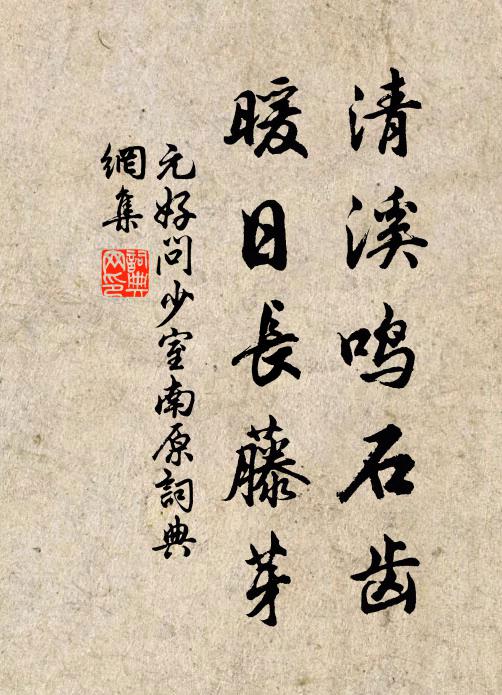 清溪鸣石齿
暖日長藤芽
元好问少室南原詞典
網集
詞典
网印